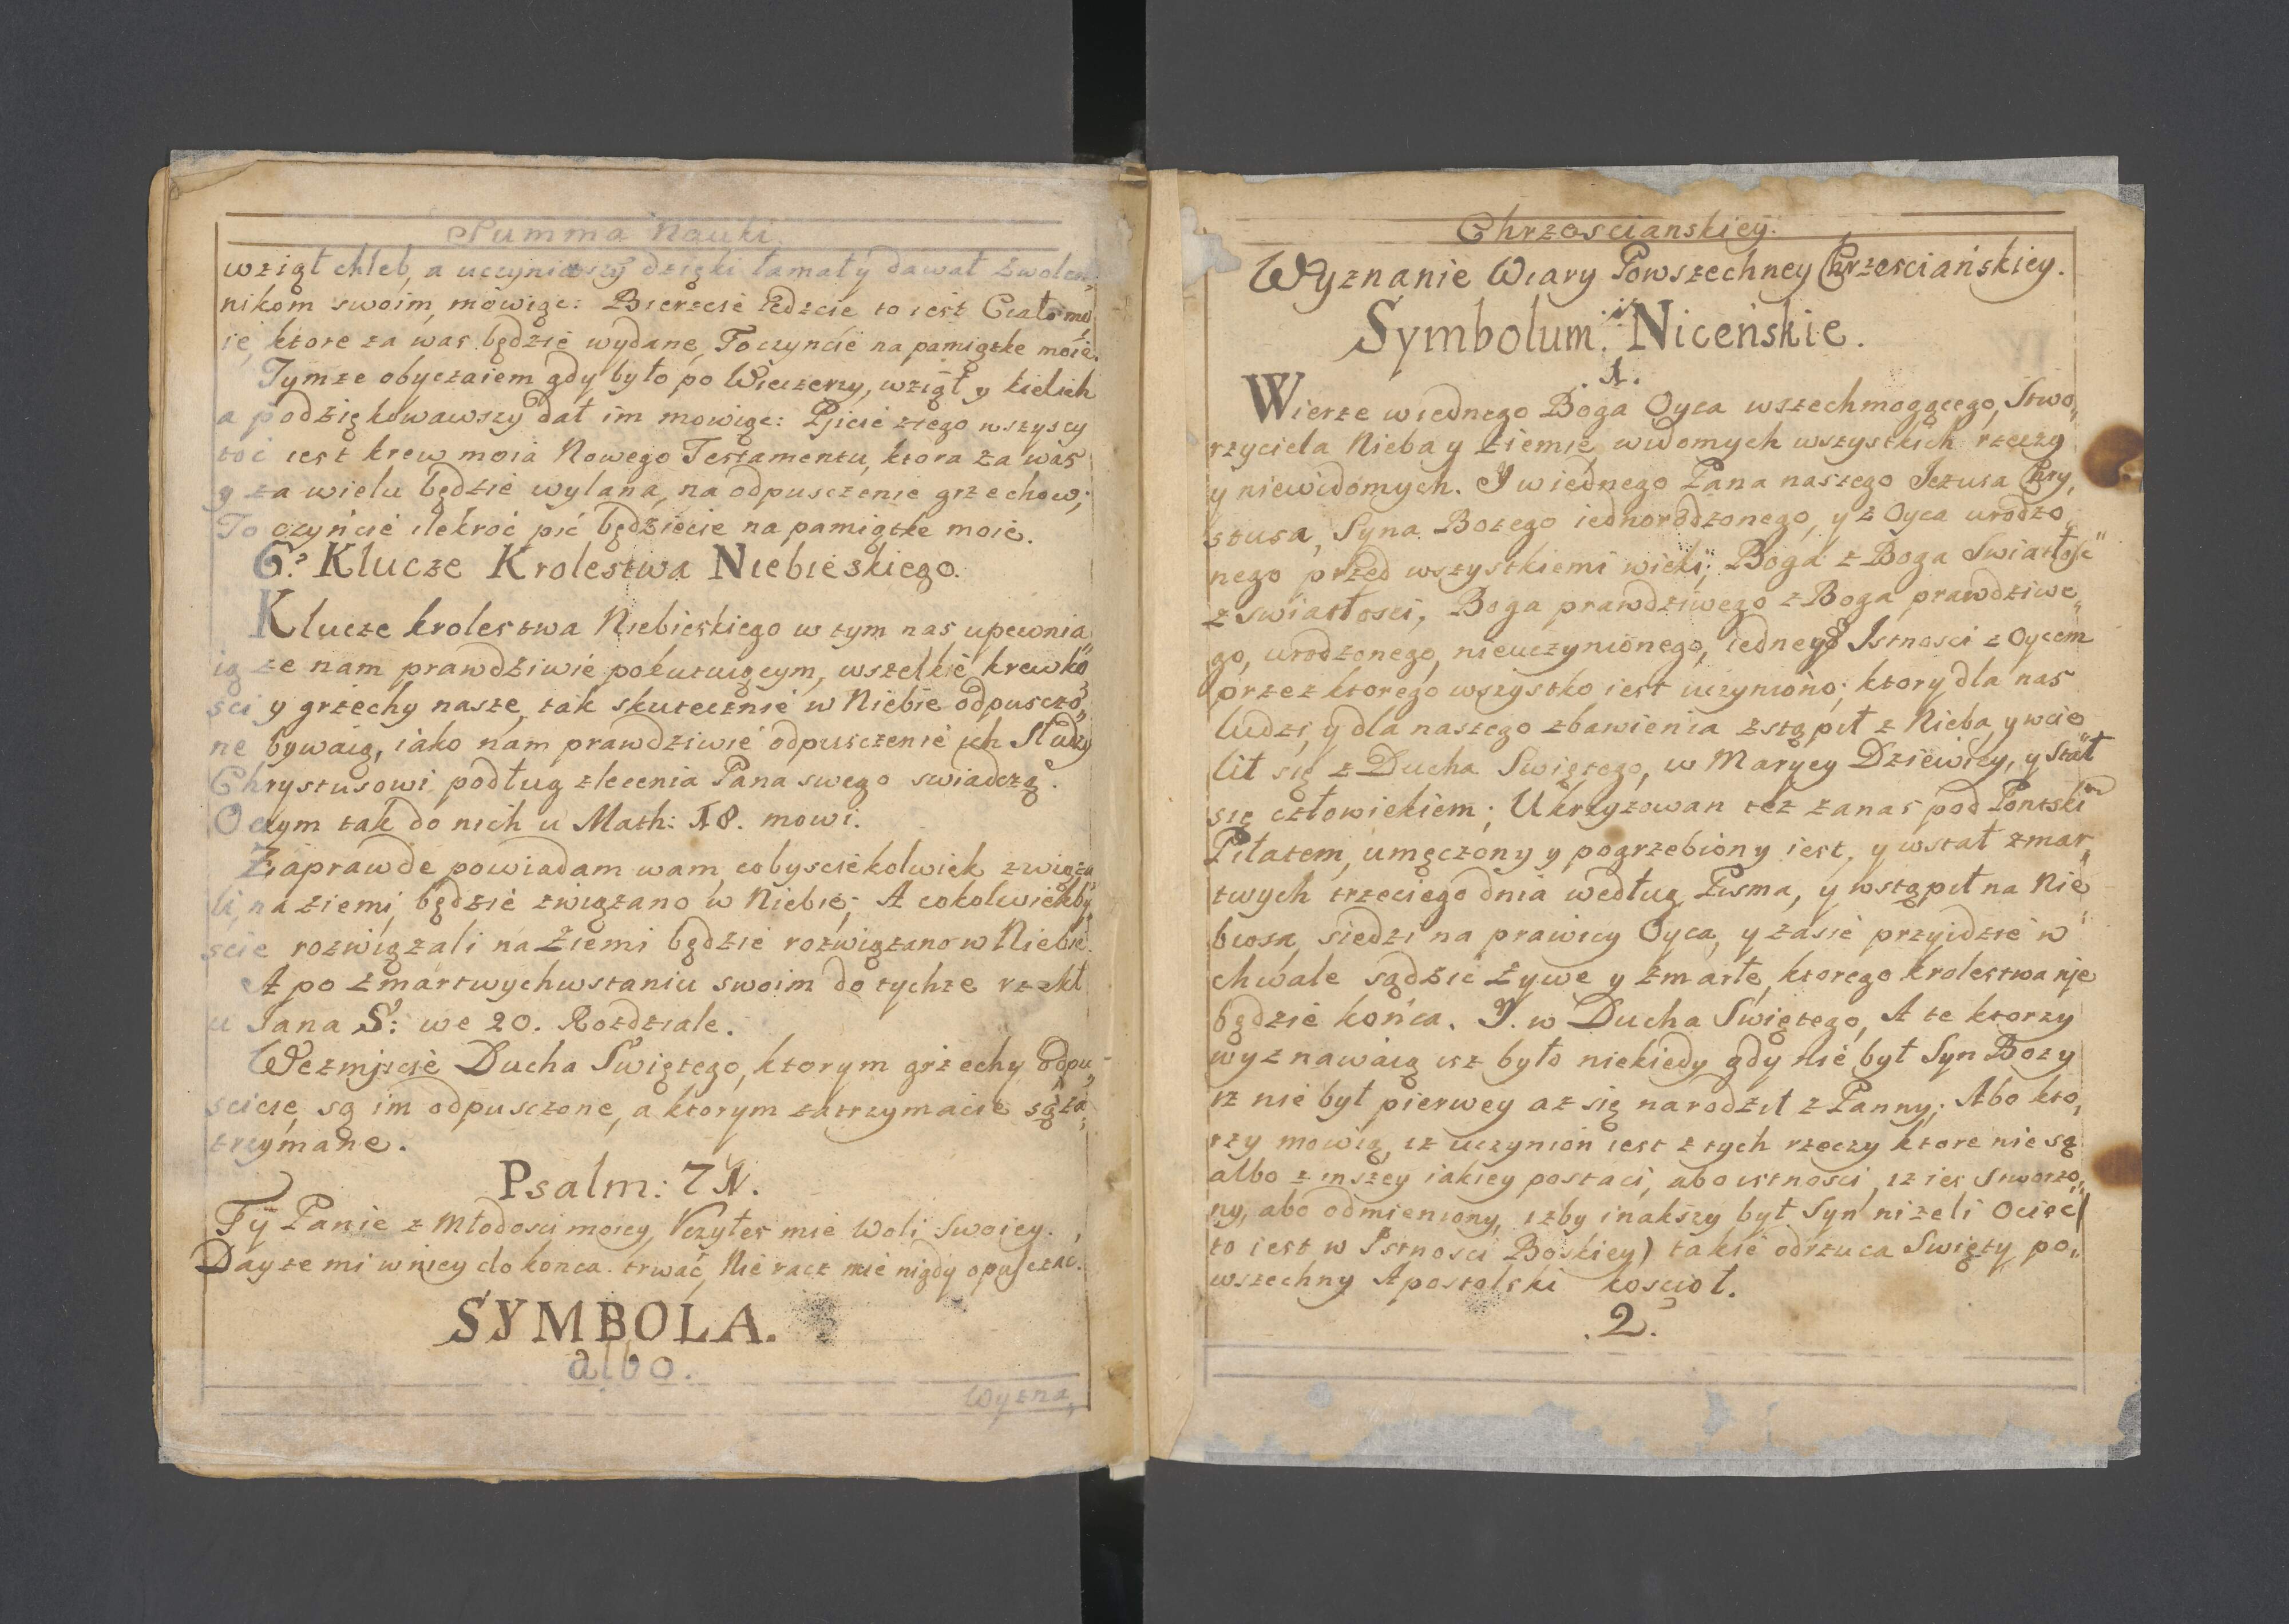 Summa Nauki
wziął chleb, a uczyniwszy dzięki łamał y dawał Zwolen„
nikom swoim, mowiąc: Bierzcie Iedzcie to iest Ciało mo„
ie, ktore za was będzie wydane, To czyńcie na pamiątke moię.
Tymze obyczaiem gdy było po Wieczerzy, wziął y kielich
a podziękowawszy dał im mowiąc: Pijcie ztego wszyscy
toć iest krew moia Nowego Testamentu, ktora za was
y za wielu będzie wylana, na odpusczenie grzechow;
To czyńcie ilekroć pić będziecie na pamiątke moię.
6.º Klucze Krolestwa Niebieskiego.
Klucze krolestwa Niebieskiego w tym nas upewnia„
ią ze nam prawdziwie pokutuiącym, wszelkie krewko„
sci y grzechy nasze, tak skutecznie w Niebie odpusczo„
ne bywaią, iako nam prawdziwie odpusczenie ich Słudzy
Chrystusowi podług zlecenia Pana swego swiadczą.
O czym tak do nich u Math: 18. mowi.
Zaprawde powiadam wam, cobysciekolwiek związa„
li, na ziemi, będzie związano w Niebie; A cokolwiekby„
scie rozwiązali na Ziemi będzie rozwiązano w Niebie.
A po Zmartwychwstaniu swoim do tychze rzekł
u Jana S: we 20. Rozdziale.
Wezmijcie Ducha Swiętego, ktorym grzechy odpu„
scicie, są im odpusczone, a ktorym zatrzymacie są za„
trzymane.
Psalm: 71.
Ty Panie z Młodosci moiey, Vczyłes mie Woli Swoiey.
Dayze mi w niey do konca trwać, Nie racz mie nigdy opusczać.
SYMBOLA.
albo.
Wyzna„
Chrzescianskiey.
Wyznanie Wiary Powszechney Chrzesciańskiey.
Symbolum Niceńskie.
.1.
Wierze w iednego Boga Oyca wszechmogącego, Stwo„
rzyciela Nieba y Ziemie, widomych wszystkich rzeczy
y niewidomych. Y w iednego Pana naszego Jezusa Chry„
stusa, Syna Bozego iednorodzonego, y z Oyca urodzo„
nego przed wszystkiemi wieki; Boga z Boga Swiatłość
z swiatłosci, Boga prawdziwego z Boga prawdziwe„
go, urodzonego, nieuczynionego, iedney Istnosci z Oycem
przez ktorego wszystko iest uczyniono; ktory dla nas
ludzi, y dla naszego zbawienia zstąpił z Nieba, y wcie„
lił się z Ducha Swiętego, w Maryey Dziewicy, y stał
się człowiekiem; Ukrzyzowan tez za nas pod Pontski„
Piłatem, umęczony y pogrzebiony iest, y wstał zmar„
twych trzeciego dnia według Pisma, y wstąpił na Nie„
biosa, siedzi na prawicy Oyca, y zasie przyidzie w
chwale sądzić Zywe y Zmarłe, ktorego krolestwa nie
będzie końca. Y. w Ducha Swiętego, A te ktorzy
wyznawaią isz było niekiedy gdy nie był Syn Bozy
iz nie był pierwey az się narodził z Panny; Abo kto„
rzy mowią, iz uczynion iest z tych rzeczy ktore nie są
albo z inszey iakiey postaci, abo istnosci, iz ies stworzo„
ny, abo odmieniony, izby inakszy był Syn nizeli Ociec (
to iest w Istnosci Boskiey) takie odrzuca Swięty po„
wszechny Apostolski koscioł.
.2.